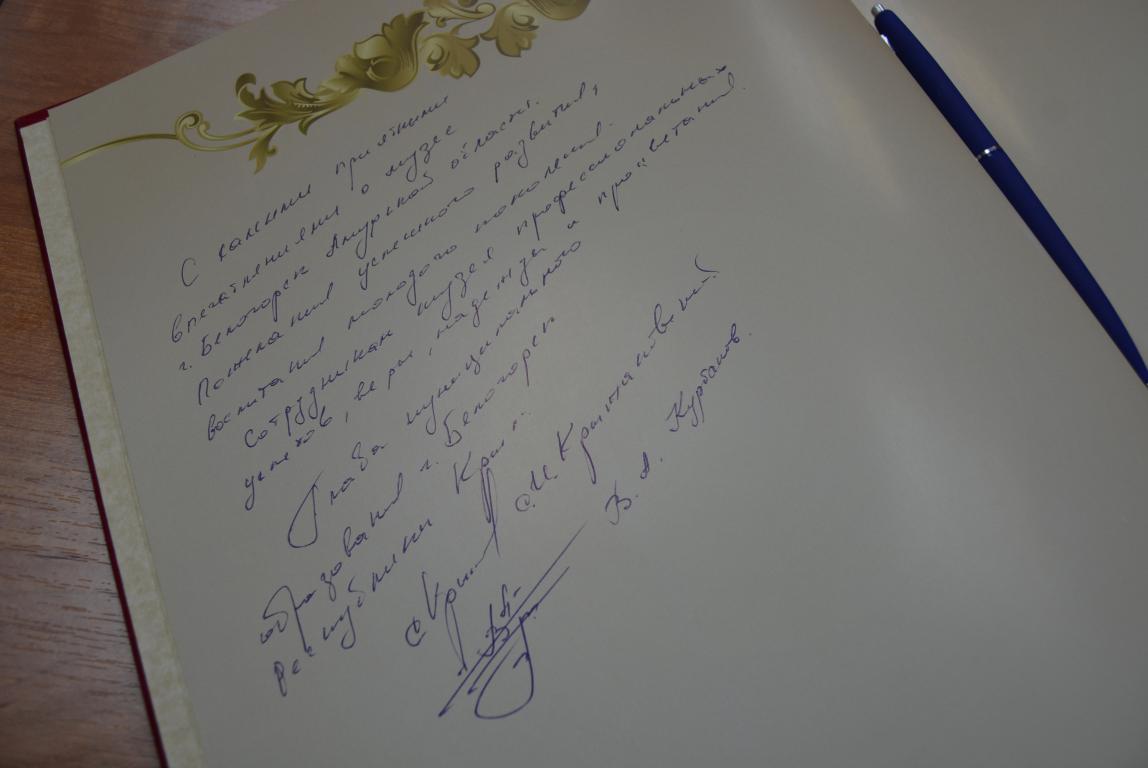 С самыми приятными
впечатлениями о музее
г. Белогорск Амурской области.
Пожелания успешного развития,
воспитания молодого поколения.
Сотрудникам музея профессиональных
успехов, веры, надежды и процветания.
Глава муниципального
образования г. Белогорск
республики Крым.
С.И. Крыжановский.
В. А. Курбанов.